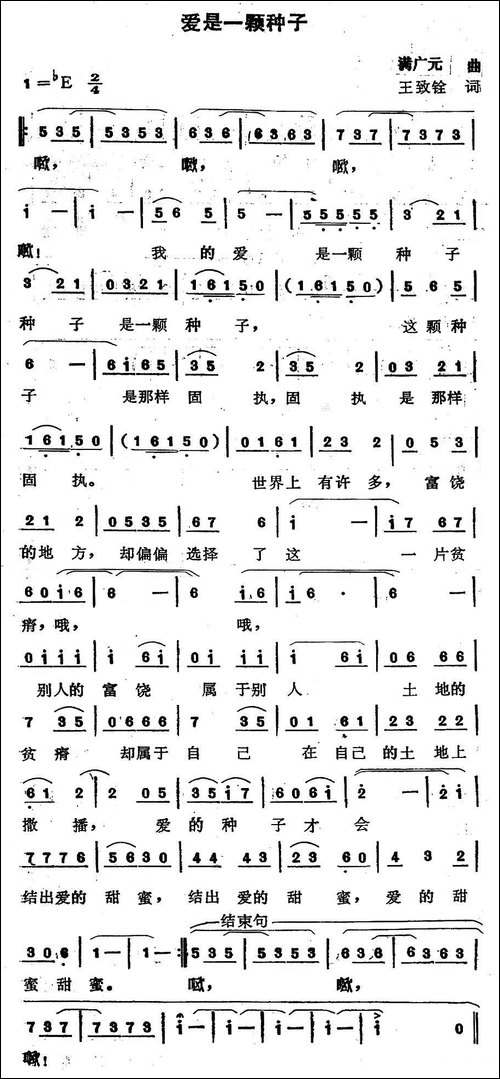 爱是一颗种子
满广元 曲
1=♭E 2/4
王致铨 词
‖: 535 | 5353 | 636 | 6363 | 737 | 7373 |
i — | i — | 56 5 | 5 — | 55555 | 3 21 |
我 的 爱 是一颗 种 子
3 21 | 0321 | 16150 | (16150) | 5 65 |
种 子 是一颗 种 子， 这 颗 种
6 — | 6i65 | 35 2 | 35 2 | 03 21 |
子 是那样 固 执，固 执 是 那样
16150 | (16150) | 0161 | 23 2 | 0 53 |
固 执。 世界上 有许 多， 富饶
21 2 | 0535 | 67 6 | i — | i7 67 |
的地 方， 却偏偏 选择 了 这 一 片贫
60i6 | 6 — | 6 — | 6i6 | i6 · | 6 — |
瘠，哦， 哦，
0iii | i 6i | 0i ii | i 6i | 06 66 |
别人的 富 饶 属 于别 人 土 地的
7 35 | 0666 | 7 35 | 01 61 | 23 22 |
贫 瘠 却属于 自 己 在 自己 的土 地上
61 2 | 2 05 | 35i7 | 606i | 2 — | 2i |
撒 播， 爱 的 种 子才 会
7776 | 5630 | 44 43 | 23 60 | 4 32 |
结出爱的 甜 蜜， 结出 爱的 甜 蜜， 爱 的 甜
结束句
306 | 1— | 1— :‖ 535 | 5353 | 636 | 6363 |
蜜 甜 蜜。
737 | 7373 | i— | i— | i— | i— | i 0 ‖